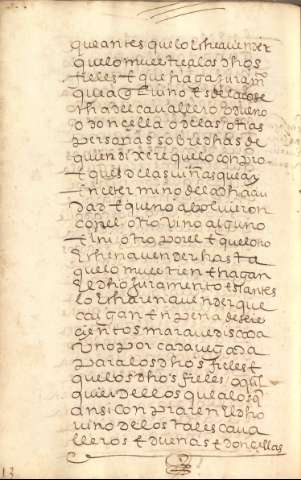 que antes que lo eche a vender
que lo muestre a los dhos
fieles e que haga juramto
que aql vino es de la cose
cha del cavallero o dueno
o doncella o de las otras
personas sobredhas de
quien dixere que lo conpro
e que es de las viñas que ay
en el termino de la dha çiu
dad e que no a bolvieron
con el otro vino alguno
e ni otro por el e que lo no
echen a vender hasta
que lo muestren e hagan
el dho juramento e si antes
lo echaren a vender que
caigan en pena de seis
cientos maravedis cada
uno por cada vegada
para los dhos fieles e
que los dhos fieles o qual
quier dellos que a los q
ansi conpraren el dho
vino de los tales cava
lleros e duenas e doncellas
13